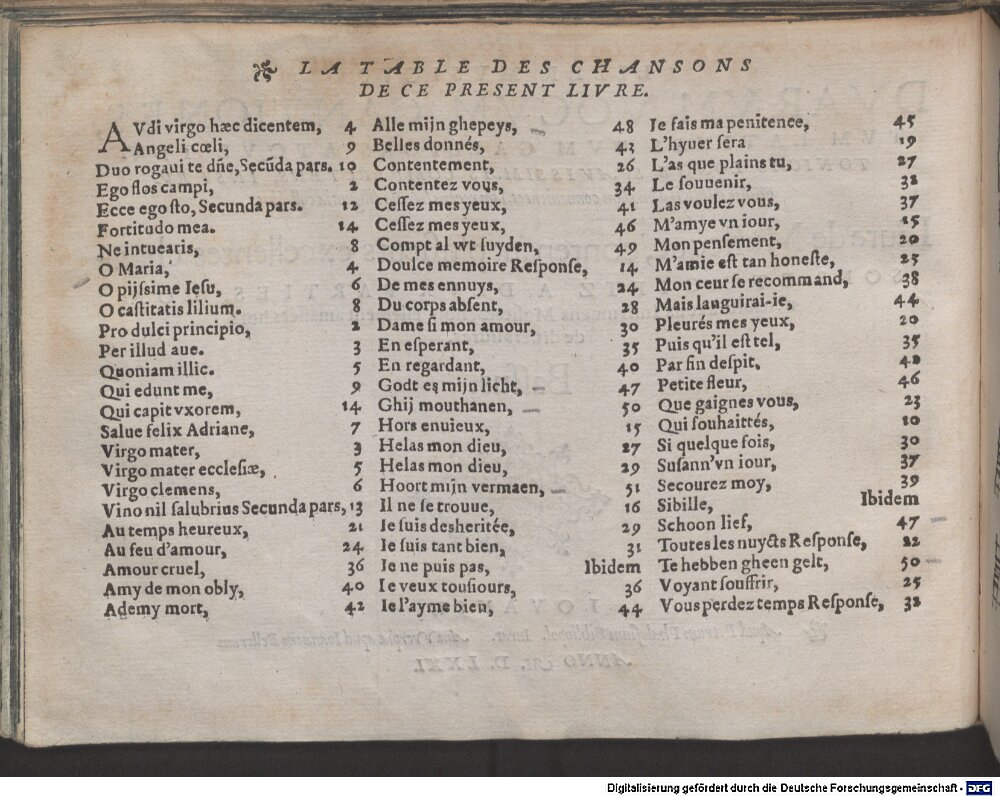 LA TABLE DES CHANSONS
DE CE PRESENT LIVRE.
AVdi virgo hæc dicentem, 4
Angeli cœli, 9
Duo rogaui te dñe, Secũda pars. 10
Ego flos campi, 2
Ecce ego sto, Secunda pars. 12
Fortitudo mea. 14
Ne intuearis, 8
O Maria, 4
O pijssime Iesu, 6
O castitatis lilium. 8
Pro dulci principio, 2
Per illud aue. 3
Quoniam illic. 5
Qui edunt me, 9
Qui capit vxorem, 14
Salue felix Adriane, 7
Virgo mater, 3
Virgo mater ecclesiæ, 5
Virgo clemens, 6
Vino nil salubrius Secunda pars, 13
Au temps heureux, 21
Au feu d'amour, 24
Amour cruel, 36
Amy de mon obly, 40
Ademy mort, 42
Alle mijn ghepeys, 48
Belles donnés, 43
Contentement, 26
Contentez vous, 34
Cessez mes yeux, 41
Cessez mes yeux, 46
Compt al wt suyden, 49
Doulce memoire Response, 14
De mes ennuys, 24
Du corps absent, 28
Dame si mon amour, 30
En esperant, 35
En regardant, 40
Godt es mijn licht, 47
Ghij mouthanen, 50
Hors enuieux, 15
Helas mon dieu, 27
Helas mon dieu, 29
Hoort mijn vermaen, 51
Il ne se trouue, 16
Ie suis desheritée, 29
Ie suis tant bien, 31
Ie ne puis pas, Ibidem
Ie veux tousiours, 36
Ie l'ayme bien, 44
Ie fais ma penitence, 45
L'hyuer sera 19
L'as que plains tu, 27
Le souuenir, 32
Las voulez vous, 37
M'amye vn iour, 15
Mon pensement, 20
M'amie est tan honeste, 25
Mon ceur se recommand, 38
Mais languirai-ie, 44
Pleurés mes yeux, 20
Puis qu'il est tel, 35
Par fin despit, 42
Petite fleur, 46
Que gaignes vous, 23
Qui souhaittés, 10
Si quelque fois, 30
Susann'vn iour, 37
Secourez moy, 39
Sibille, Ibidem
Schoon lief, 47
Toutes les nuycts Response, 22
Te hebben gheen gelt, 50
Voyant souffrir, 25
Vous perdez temps Response, 32
Digitalisierung gefördert durch die Deutsche Forschungsgemeinschaft - DFG